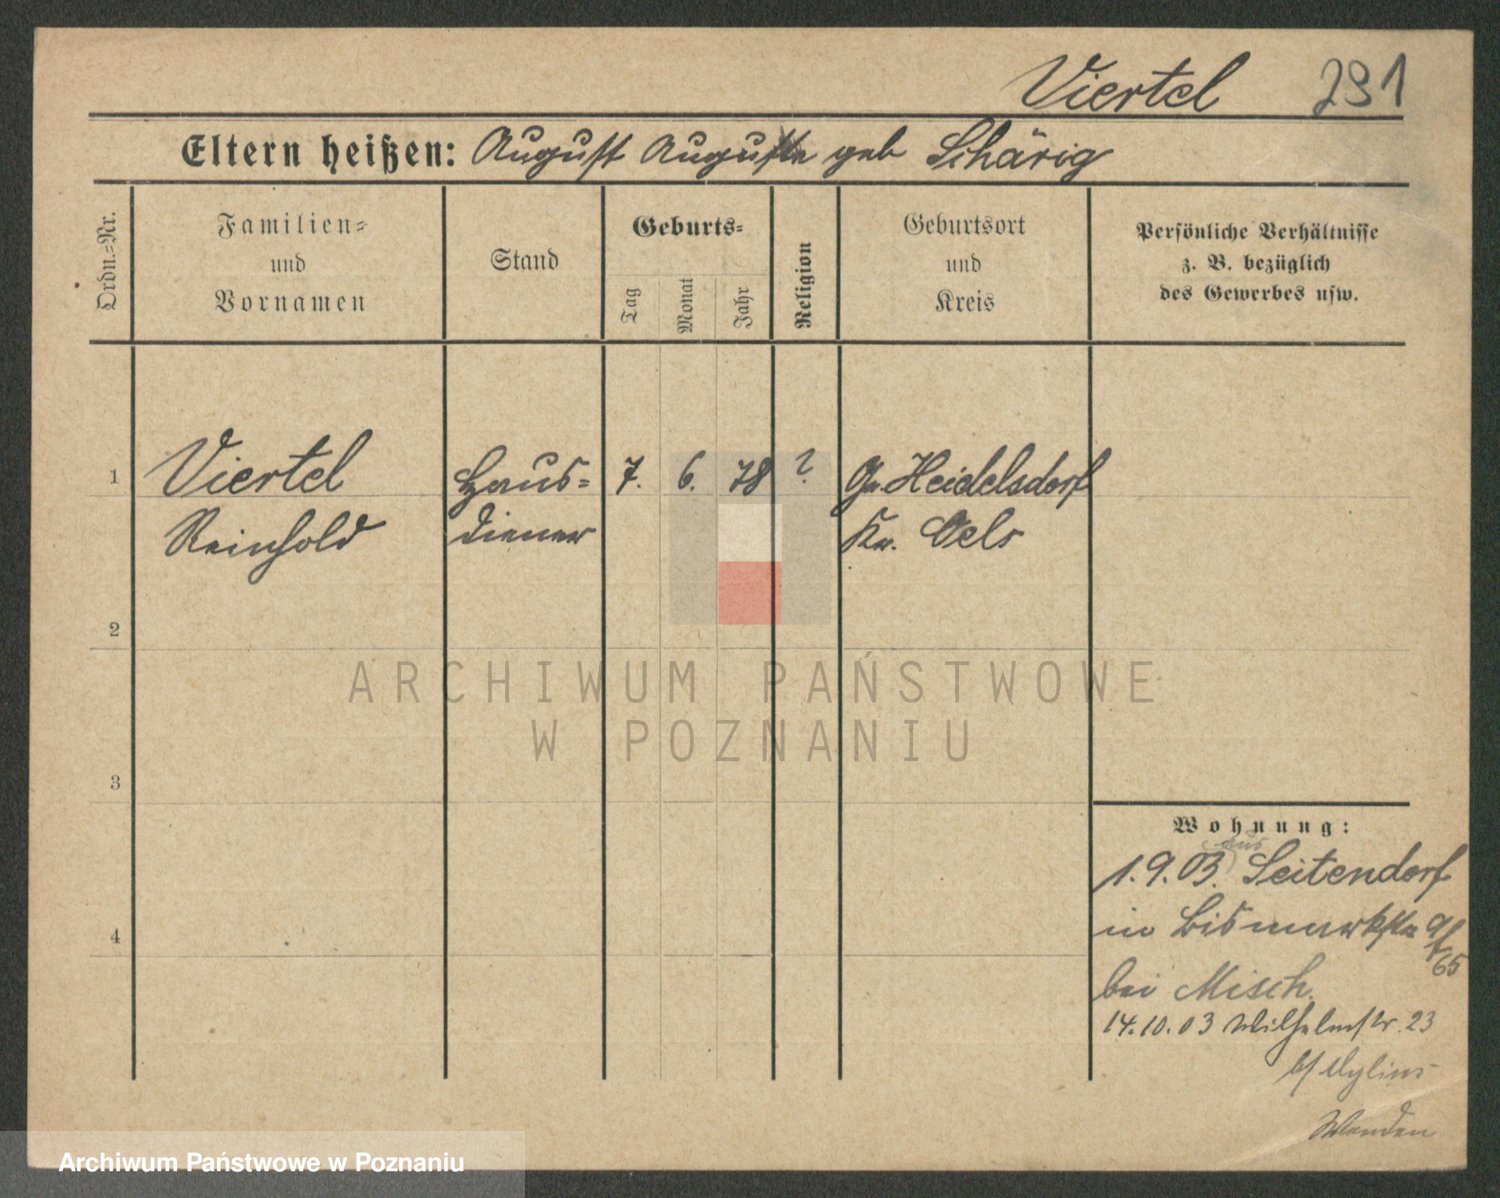 Viertel 291
Eltern heißen: August Auguste geb Schärig
Ordn.=Nr.
Familien=
und
Vornamen
Stand
Geburts=
Tag
Monat
Jahr
Religion
Geburtsort
und
Kreis
Persönliche Verhältnisse
z. B. bezüglich
des Gewerbes usw.
1 Viertel Haus= 7. 6. 78 ? Gr. Heidelsdorf
Reinhold diener Kr. Oels
2
3
4
ARCHIWUM PAŃSTWOWE
W POZNANIU
Wohnung:
aus
1.9.03. Seitendorf
in Bismarkstr 9/
65
bei Misch.
14.10.03 Wilhelmstr. 23
b/ Mylius
Wenden
Archiwum Państwowe w Poznaniu